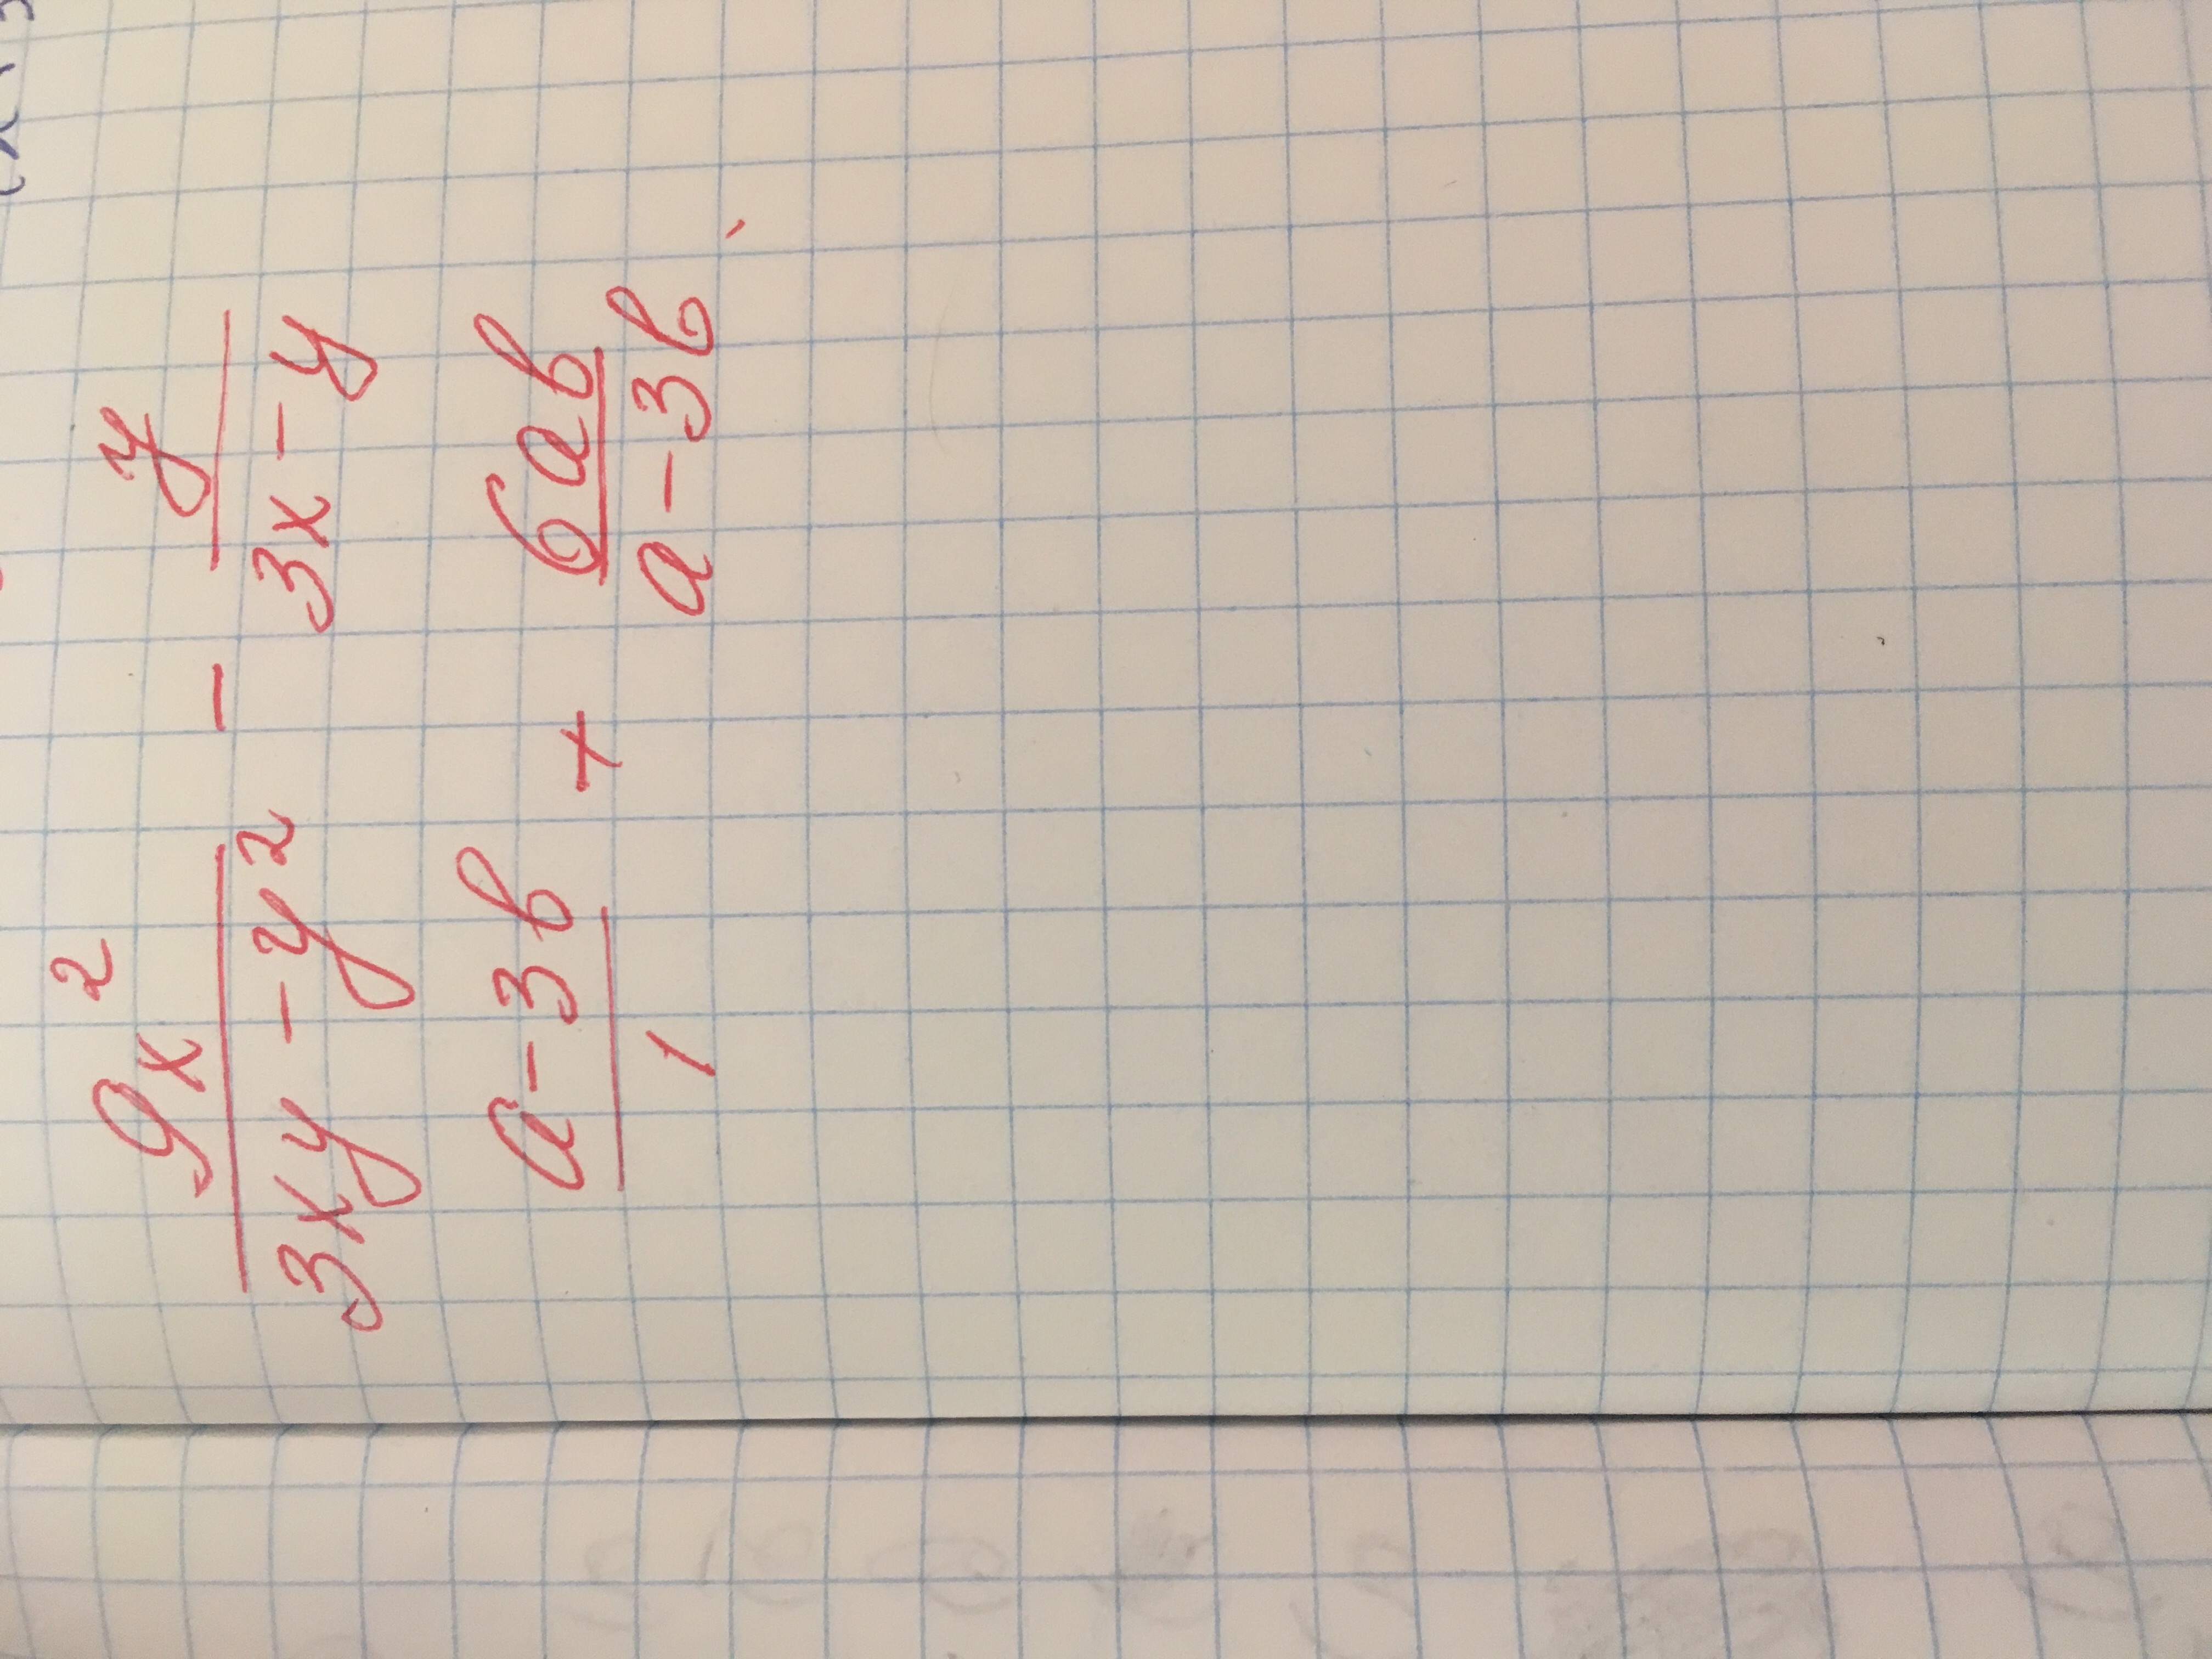 9x² / 3xy - y² - y / 3x - y
a - 3b / 1 + 6ab / a - 3b